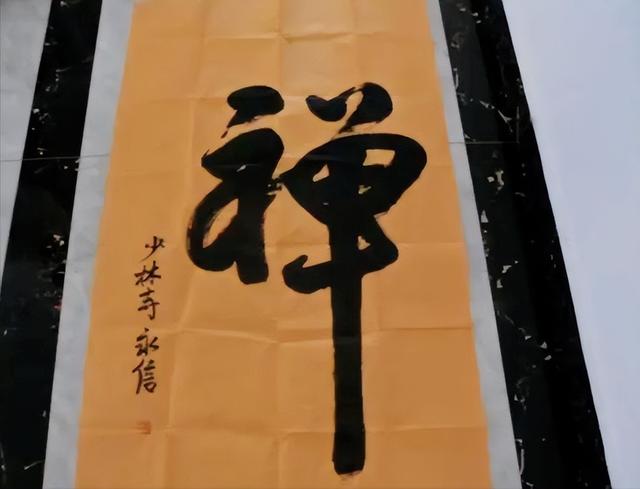 禅
少林寺 永信